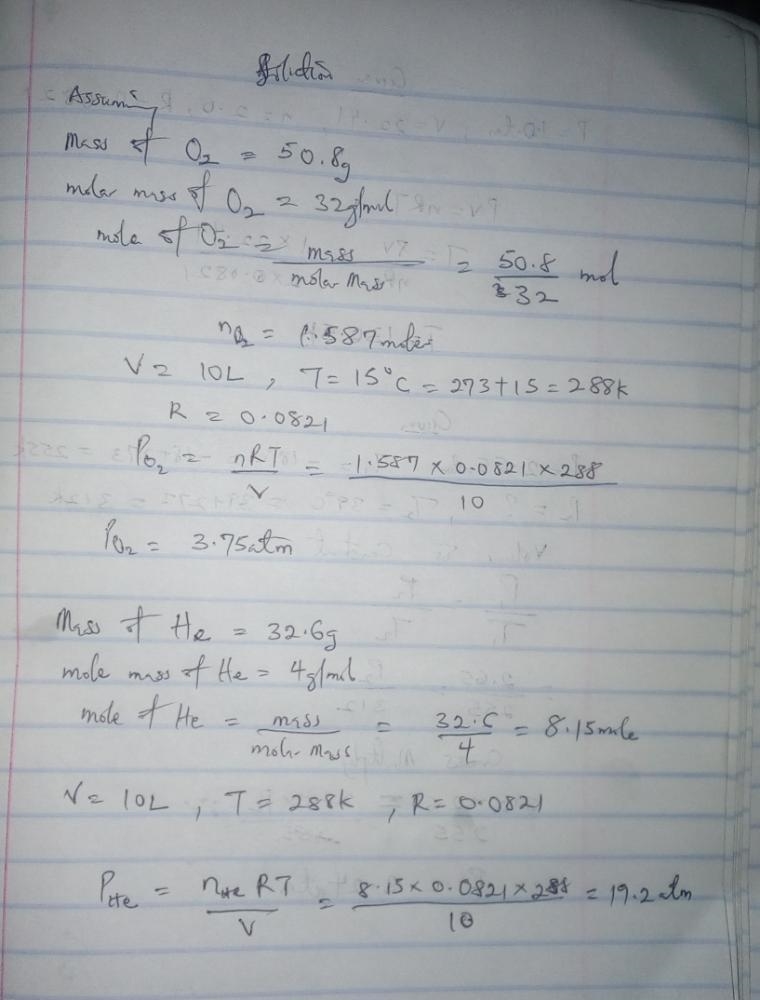 Solution
Assume,
Mass of O2 = 50.8g
molar mass of O2 = 32g/mol
mole of O2 = mass / molar Mass = 50.8 / 32 mol
nO2 = 1.587 moles
V = 10L , T = 15°C = 273+15 = 288k
R = 0.0821
PO2 = nRT / V = 1.587 × 0.0821 × 288 / 10
PO2 = 3.75atm
Mass of He = 32.6g
mole mass of He = 4g/mol
mole of He = mass / molar Mass = 32.6 / 4 = 8.15 mole
V = 10L , T = 288k , R = 0.0821
PHe = nHe RT / V = 8.15 × 0.0821 × 288 / 10 = 19.2 atm